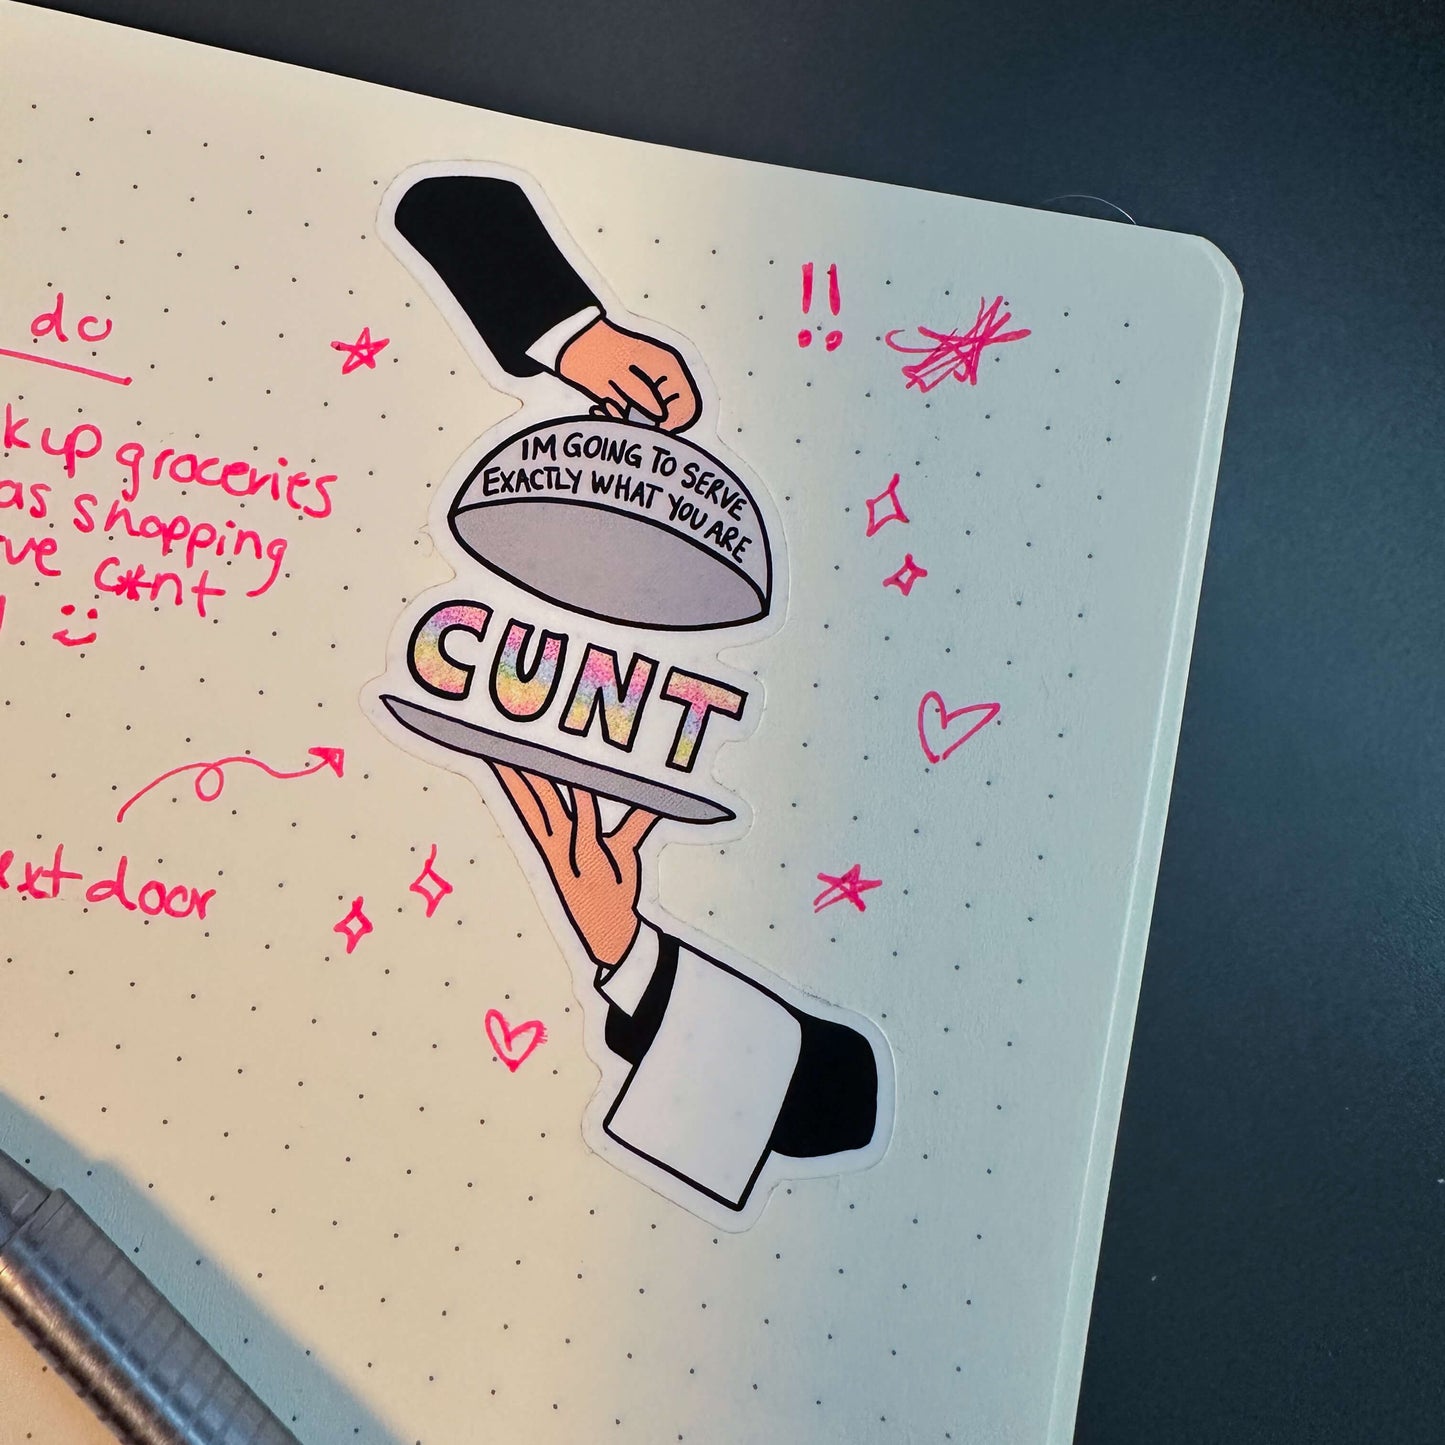 do
kup groceries
as shopping
ve c*nt
:)
ext door
!!
IM GOING TO SERVE
EXACTLY WHAT YOU ARE
CUNT